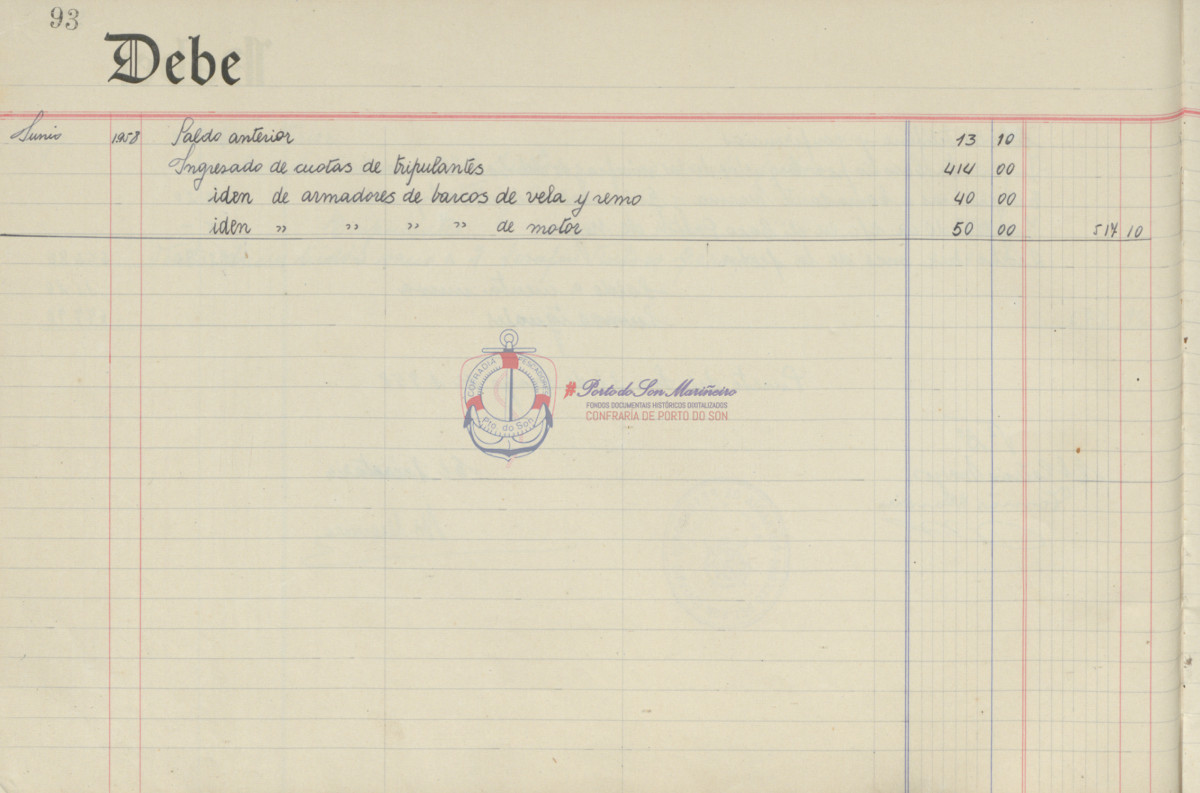 93
Debe
Junio 1958 Saldo anterior 13 10
Ingresado de cuotas de tripulantes 414 00
iden de armadores de barcos de vela y remo 40 00
iden " " " " de motor 50 00 517 10
COFRADIA PESCADORES
Pto. do Son
#Porto do Son Mariñeiro
FONDOS DOCUMENTAIS HISTÓRICOS DIXITALIZADOS
CONFRARÍA DE PORTO DO SON